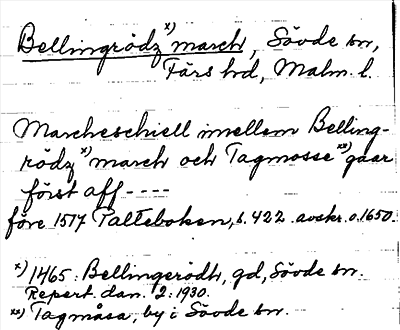 Bellingrödz x) march, Sövde sn,
Färs hd, Malm. l.
Marcheschiell imellem Belling-
rödz x) march och Tagmosse xx) gaar
först aff ----
före 1517 Palteboken, s. 422 avskr. o. 1650.
x) 1465: Bellingerödh, gd, Sövde sn.
Repert. dan. 2: 1930.
xx) Tagmåsa, by i Sövde sn.